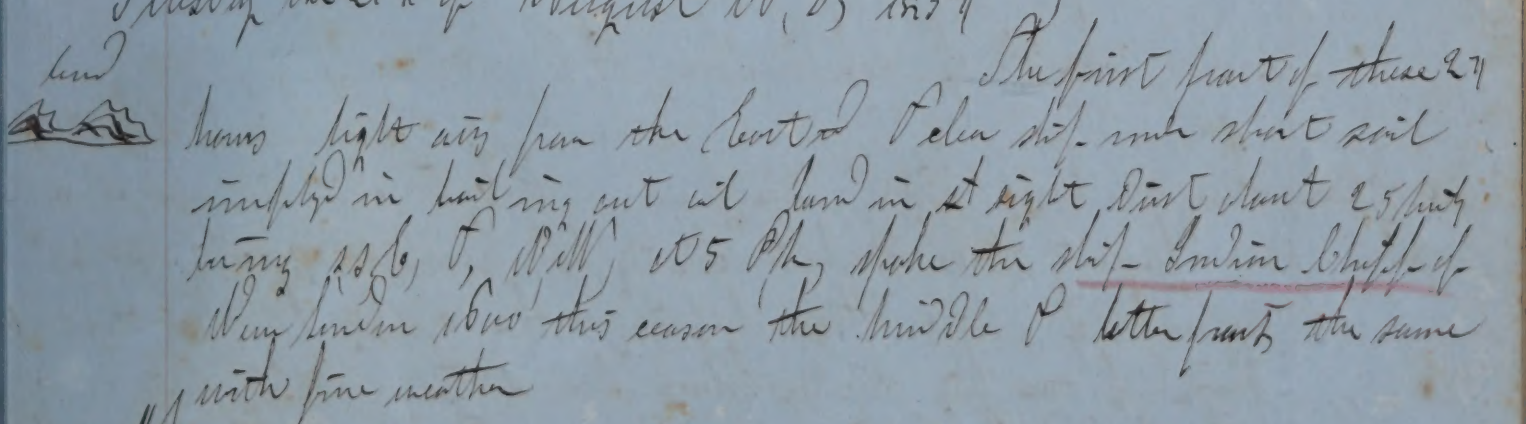 Tuesday the of August
land
The first part of these 24
hours light airs from the Eastrd & clear ship under short sail
imployd in boiling out oil land in sight Dist about 25 mils
bering S S E, & W N W, at 5 PM, spoke the ship Indian Chiff of
New london 1600 this season the middle & latter parts the same
with fine weather